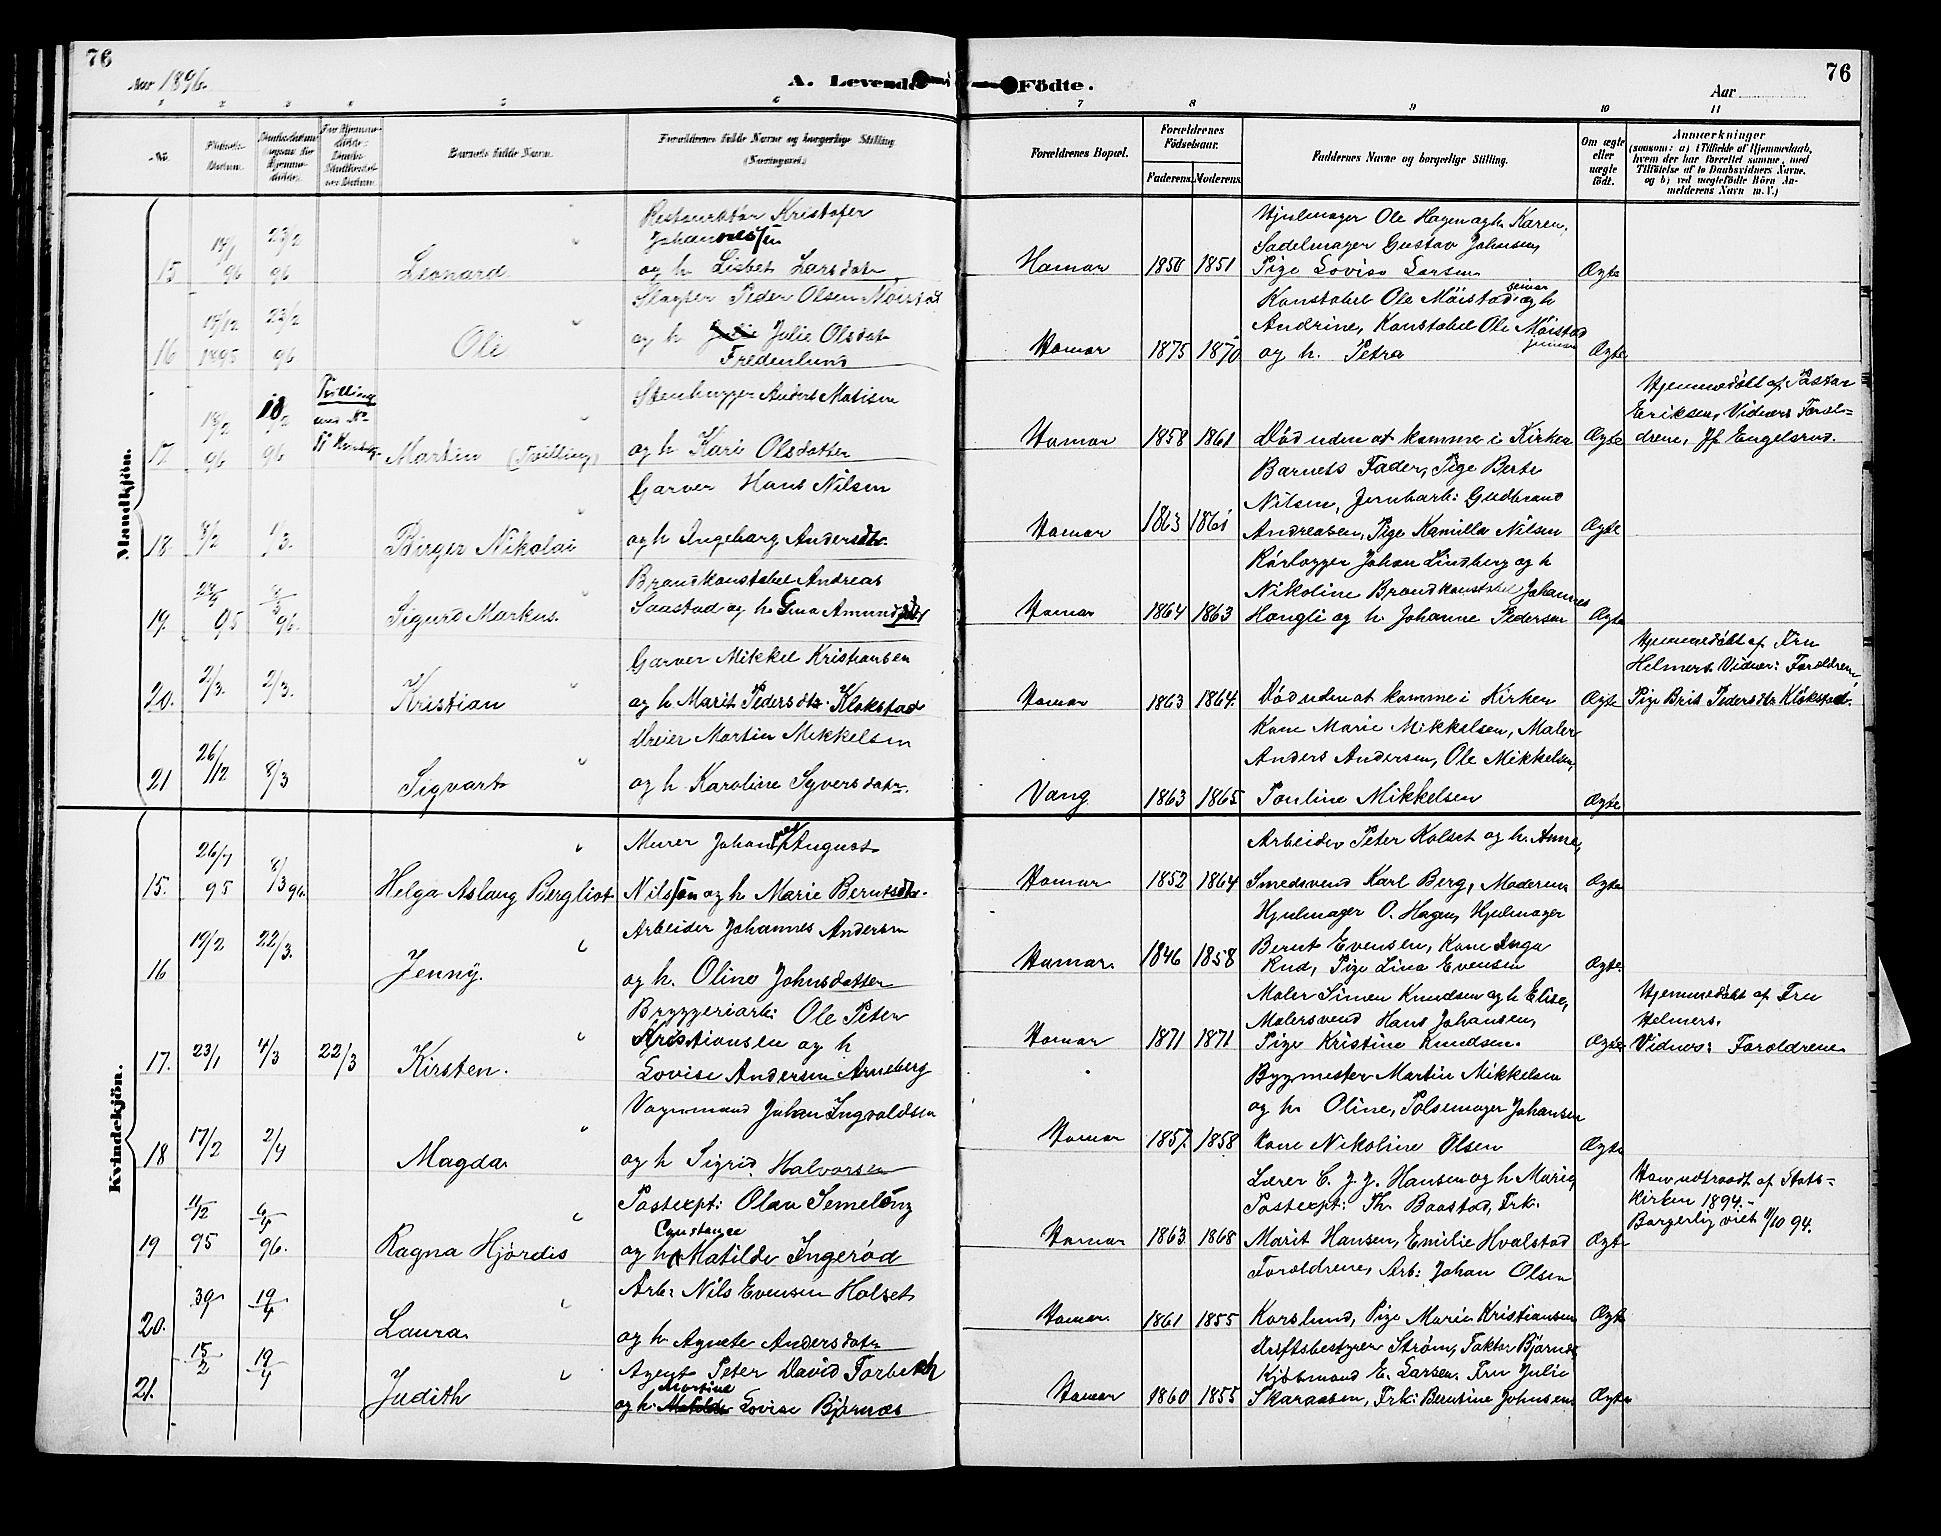 76
Aar 1896.
A. Levende Födte.
76
Aar
1 2 3 4 5 6 7 8 9 10 11
No.
Fødsels-Datum.
Barnets fulde Navn.
Forældrenes fulde Navne og borgerlige Stilling
(Næringsvei.)
Forældrenes Bopæl.
Forældrenes Fødselsaar.
Faderens. Moderens.
Faddernes Navne og borgerlige Stilling.
Om ægte eller uægte født.
Anmærkninger
(saasom: a) i Tilfælde af Hjemmedaab,
hvem der har forrettet samme, med
Tilføielse af to Daabsvidners Navne,
og b) ved uægtefødte Börn An-
melderens Navn m. V.)
Mandkjön.
Restauratør Kristofer
Johannessen
15 18/1 96 23/2 96 Leonard
og h. Lisbet Larsdatr
Hamar 1850 1851
Hjulmager Ole Hagen og h. Karen,
Sadelmager Gustav Johnsen,
Pige Lovise Larsen
Ægte
Slagter Peder Olsen Møistad
16 18/12 1895 23/2 96 Ole
og h Julie Olsdatr
Fredenlund
Hamar 1875 1870
Konstabel Ole Möistad senior og h
Andrine, Konstabel Ole Möistad junior
og h. Petra
Ægte
Stenhugger Anders Matisen
17. 18/2 96 18/2 96 Tvilling med No
Martin (Tvilling)
og h Kari Olsdatter
Hamar 1858 1861
Död uden at komme i Kirken
Ægte
Hjemmedöbt af Pastor
Eriksen, Vidner: Foræl-
drene, Jf Engelsrud.
Garver Hans Nilsen
18. 8/2 1/3. Birger Nikolai
og h Ingeborg Andersdtr.
Hamar 1863 1861
Barnets Fader, Pige Berte
Nilsen, Jernbarb: Gudbrand
Andreasen, Pige Kamilla Nilsen
Ægte
Brandkonstabel Andreas
19. 95 8/3 96. Sigurd Markus.
Saastad og h. Gina Amundsdtr
Hamar 1864 1863
Rörlægger Johan Lindberg og h
Nikoline Brandkonstabel Johannes
Hangli og h. Johanne Pedersen
Ægte
Garver Mikkel Kristiansen
20. 2/3. 2/3. Kristian
og h Marit Pedersdtr. Klokstad
Hamar 1863 1864.
Död uden at komme i Kirken
Ægte
Hjemmedöbt af Fru
Helmers. Vidner: Forældrene
Pige Brit Pedersdtr Klokstad.
Dreier Martin Mikkelsen
21 26/12 8/3 Sigvart
og h Karoline Syversdatr.
Vang 1863 1865
Kone Marie Mikkelsen, Maler
Anders Andersen, Ole Mikkelsen,
Pauline Mikkelsen
Ægte
Kvindekjön.
Murer Johan August
15. 26/7 95 8/3 96. Helga Aslaug Bergliot
Nilsson og h Marie Berntsdtr.
Hamar 1852 1864
Arbeider Peter Kolset og h. Anne,
Smedsvend Karl Berg, Moderen
Ægte
Arbeider Johannes Andersen
16 19/2 22/3. Jenny.
og h. Oline Johnsdatter
Hamar. 1846 1858
Hjulmager O. Hagen, Hjulmager
Bernt Evensen, Kone Inga
Rud, Pige Lina Evensen
Ægte.
Bryggeriarb: Ole Peter
17. 23/1 4/3 22/3 Kirsten.
Kristiansen og h
Lovise Andersen Arneberg
Hamar 1871 1871
Maler Simen Knudsen og h Elise,
Malersvend Hans Johansen,
Pige Kristine Knudsen.
Ægte
Hjemmedöbt af Fru
Helmers.
Vidner: Forældrene
Vognmand Johan Ingvaldsen
18 17/2 2/4 Magda
og h Sigrid Halvorsen
Hamar 1857. 1858
Bygmester Martin Mikkelsen
og h. Oline, Pölsemager Johansen
Kone Nikoline Olsen
Ægte
Postexpt: Olav Semeleng
19 11/12 95 6/4 96. Ragna Hjördis
og h Constance Matilde Ingeröd
Hamar 1863. 1868
Lærer C. J. J. Hansen og h Marie,
Postexpt: Th. Baastad, Frk.
Marit Hansen, Emilie Hvalstad
Ægte
Han udtraadt af Stats-
kirken 1894.-
Borgerlig viet 11/10 94.
Arb: Nils Evensen Holset
20. 19/4 Laura
og h. Agnete Andersdatr
Hamar 1861 1855
Forældrene, Arb: Johan Olsen
Korslund, Pige Marie Kristiansen
Ægte
Agent Peter David Forbech
21. 15/2 19/4 Judith
og h. Martine Lovise Björnæs
Hamar 1860 1855
Driftsbestyrer Ström, Faktor Björnæs,
Kjöbmand E. Larsen, Fru Julie
Skaraasen, Frk: Berntine Johnsen
Ægte